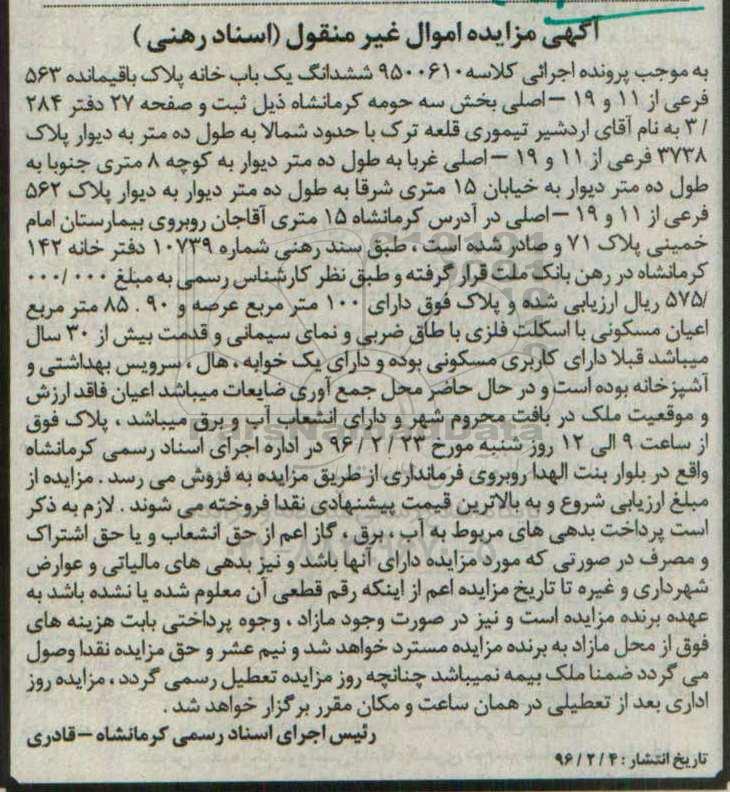 آگهی مزایده اموال غیر منقول (اسناد رهنی)
به موجب پرونده اجرائی کلاسه ۹۵۰۰۶۱۰ ششدانگ یک باب خانه پلاک باقیمانده ۵۶۳
فرعی از ۱۱ و ۱۹ – اصلی بخش سه حومه کرمانشاه ذیل ثبت و صفحه ۲۷ دفتر ۲۸۴
/ ۳ به نام آقای اردشیر تیموری قلعه ترک با حدود شمالا به طول ده متر به دیوار پلاک
۳۷۳۸ فرعی از ۱۱ و ۱۹ – اصلی غربا به طول ده متر دیوار به کوچه ۸ متری جنوبا به
طول ده متر دیوار به خیابان ۱۵ متری شرقا به طول ده متر دیوار به دیوار پلاک ۵۶۲
فرعی از ۱۱ و ۱۹ – اصلی در آدرس کرمانشاه ۱۵ متری آقاجان روبروی بیمارستان امام
خمینی پلاک ۷۱ و صادر شده است ، طبق سند رهنی شماره ۱۰۷۳۹ دفتر خانه ۱۴۲
کرمانشاه در رهن بانک ملت قرار گرفته و طبق نظر کارشناس رسمی به مبلغ ۰۰۰/۰۰۰
/۵۷۵ ریال ارزیابی شده و پلاک فوق دارای ۱۰۰ متر مربع عرصه و ۹۰ . ۸۵ متر مربع
اعیان مسکونی با اسکلت فلزی با طاق ضربی و نمای سیمانی و قدمت بیش از ۳۰ سال
میباشد قبلا دارای کاربری مسکونی بوده و دارای یک خوابه ، هال ، سرویس بهداشتی و
آشپزخانه بوده است و در حال حاضر محل جمع آوری ضایعات میباشد اعیان فاقد ارزش
و موقعیت ملک در بافت محروم شهر و دارای انشعاب آب و برق میباشد ، پلاک فوق
از ساعت ۹ الی ۱۲ روز شنبه مورخ ۲۳ / ۲ / ۹۶ در اداره اجرای اسناد رسمی کرمانشاه
واقع در بلوار بنت الهدا روبروی فرمانداری از طریق مزایده به فروش می رسد . مزایده از
مبلغ ارزیابی شروع و به بالاترین قیمت پیشنهادی نقدا فروخته می شوند . لازم به ذکر
است پرداخت بدهی های مربوط به آب ، برق ، گاز اعم از حق انشعاب و یا حق اشتراک
و مصرف در صورتی که مورد مزایده دارای آنها باشد و نیز بدهی های مالیاتی و عوارض
شهرداری و غیره تا تاریخ مزایده اعم از اینکه رقم قطعی آن معلوم شده یا نشده باشد به
عهده برنده مزایده است و نیز در صورت وجود مازاد ، وجوه پرداختی بابت هزینه های
فوق از محل مازاد به برنده مزایده مسترد خواهد شد و نیم عشر و حق مزایده نقدا وصول
می گردد ضمنا ملک بیمه نمیباشد چنانچه روز مزایده تعطیل رسمی گردد ، مزایده روز
اداری بعد از تعطیلی در همان ساعت و مکان مقرر برگزار خواهد شد .
رئیس اجرای اسناد رسمی کرمانشاه – قادری
تاریخ انتشار : ۹۶/۲/۴